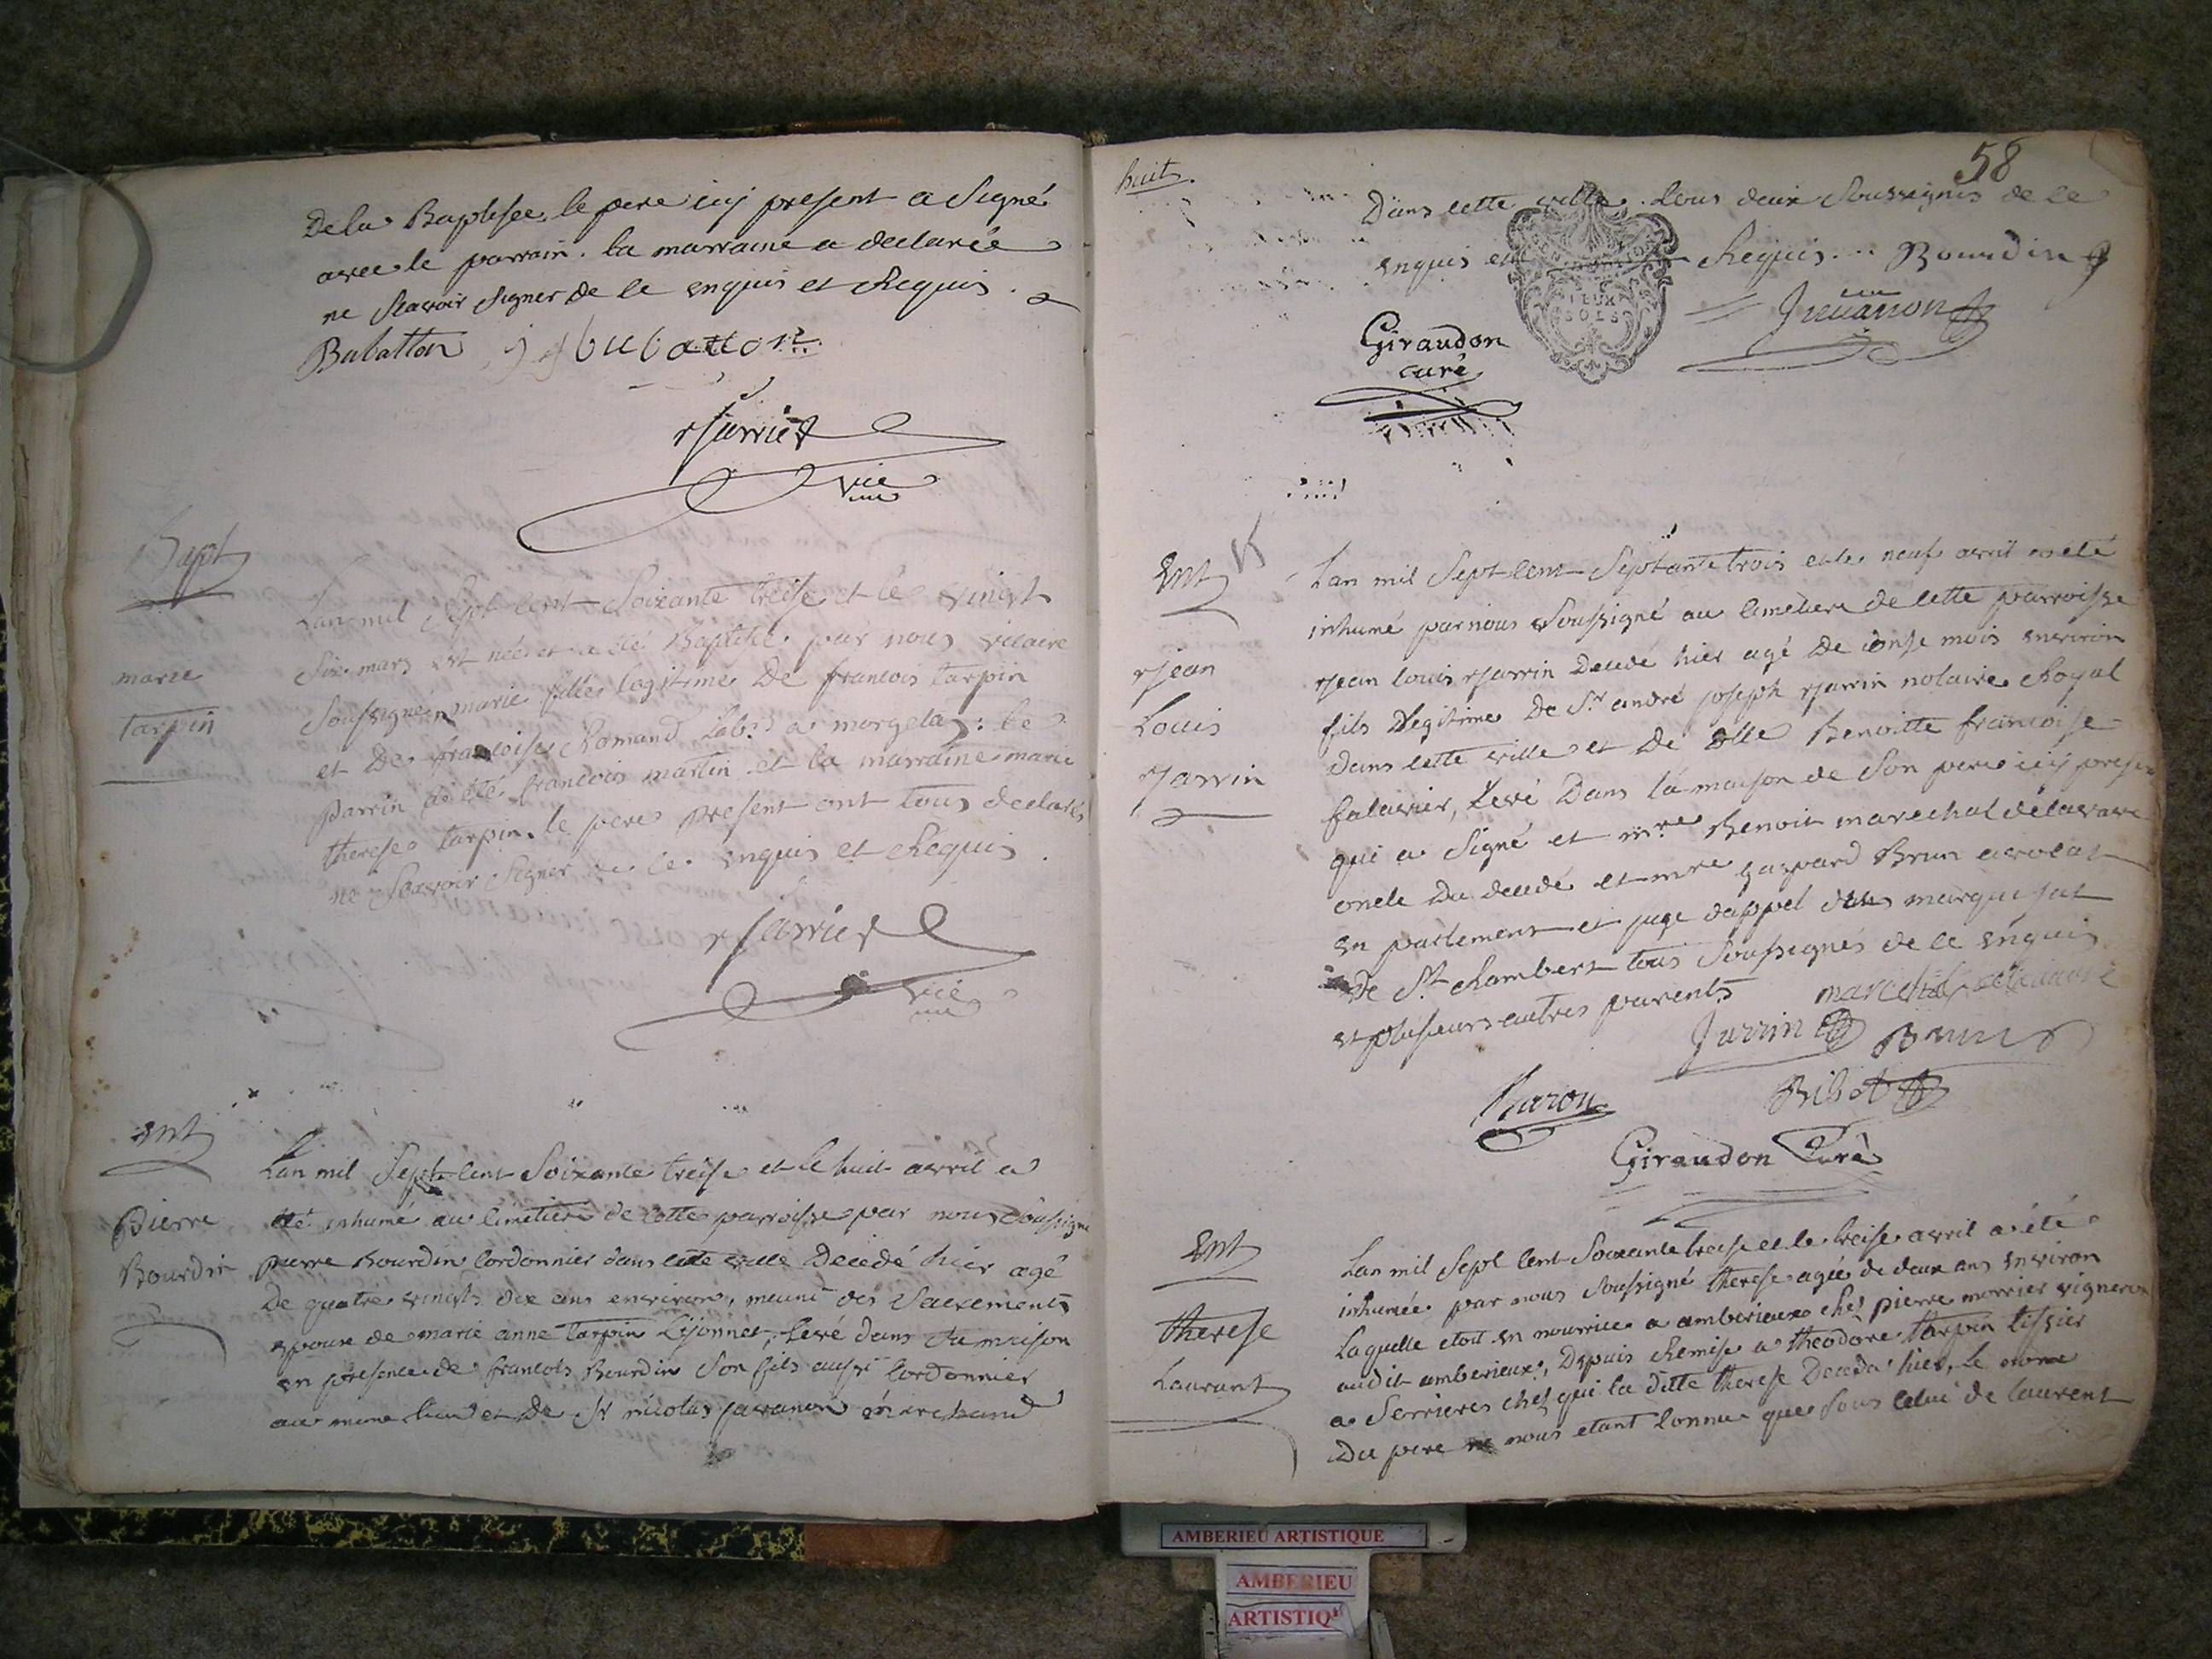 De la Baptisee, le pere icij present a Signé
avec le parrain. la marraine a declarée
ne Scavoir Signer de ce enquis et Requis.
Bubatton bubatton
Jarrier
vic
Bapt
marie
tarpin
Lan mil Sept cent Soixante treise et le vingt
Six mars est née et a été Baptisée par nous vicaire
Soussigné marie fille legitime De francois tarpin
et De francoise Romand Lab.r a morgelas: le
parrin a été francois martin et la marraine marie
therese tarpin. le pere present ont tous declarés
ne Scavoir Signer de ce enquis et Requis.
Jarrier
vic
Ent
Pierre
Bourdin
Lan mil Sept cent Soixante treise et le huit avril a
été inhumé au cimetiere de cette parroisse par nous Soussigné
pierre Bourdin Cordonnier dans cette ville Decedé hier agé
De quatre vingts dix ans environ, meuni des Sacrements
epoux de marie anne tarpin Lyonnet, levé dans Sa maison
en presence de francois Bourdin Son fils aussi Cordonnier
au meme lieu et De Sr nicolas juvanon marchand
huit.
58
Dans cette ville. tous deux Soussignés de ce
enquis et Requis... Bourdin
DEUX
SOLS
Juvanon
Giraudon
curé
Ent
Jean
Louis
Jarrin
Lan mil Sept cent Septante trois et le neuf avril a été
inhumé par nous Soussigné au cimetiere de cette parroisse
Jean louis Jarrin Decedé hier agé De onse mois environ
fils Legitime De Sr. andré joseph Jarrin notaire Royal
dans cette ville et De dlle Benoitte francoise
falavier, Levé Dans la maison de Son pere icij present
qui a Signé et mre Benoit marechal delavavre
oncle Du decedé et mre gaspard Brun avocat
en parlement et juge dappel du marquisat
De St. Rambert tous Soussignés de ce enquis
et plusieurs autres parents marechal delavavre
Jarrin Brun
Baron Bibet
Giraudon Curé
Ent
therese
Laurant
Lan mil Sept cent Soixante treise et le treise avril a été
inhumée par nous Soussigné therese agée de deux ans environ
Laquelle etoit en nourrice a amberieux chez pierre morrier vigneron
audit amberieux, Depuis Remise a theodore tarpin tissier
a Serrieres chez qui la ditte therese Deceda hier, le nom
Du pere ne nous etant Connu que Sous celui de laurent
AMBERIEU ARTISTIQUE
AMBERIEU
ARTISTIQ